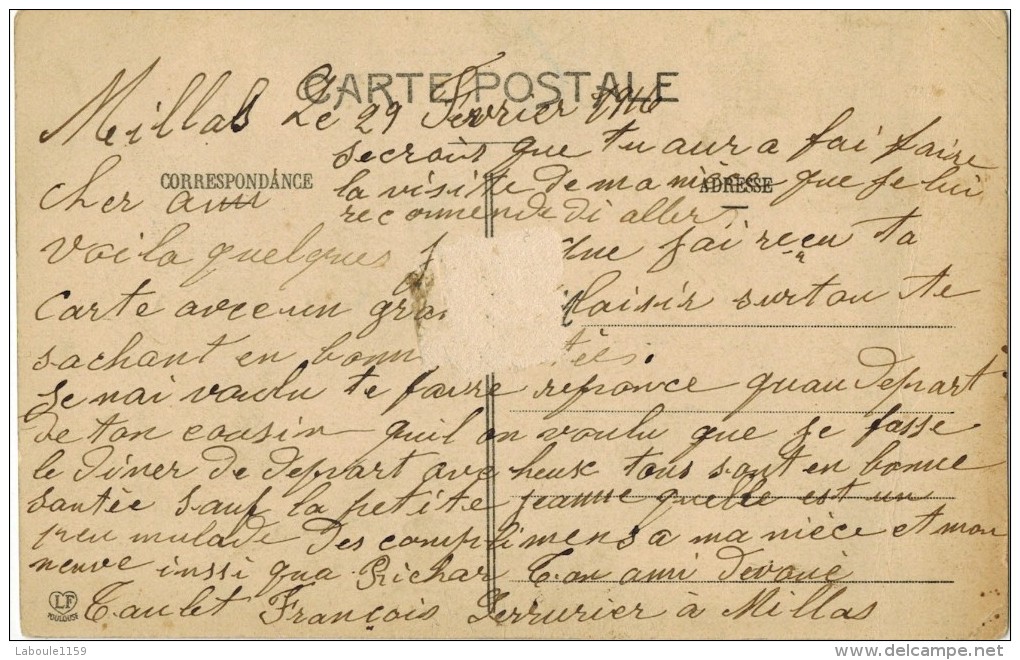 CARTE POSTALE
Millas Le 29 Fevrier 1910
secrois que tu aura fai faire
CORRESPONDANCE
ADRESSE
la visitte de ma niece que je lui
recommende di aller
cher ami
voila quelques que jai reçu ta
carte avec un gran laisir surtou te
sachant en bonn tés.
Je nai voulu te faire reponce quau depart
de ton cousin quil on voulu que je fasse
le diner de depart avec heux tous sont en bonne
santée sauf la petite jeanne quelle est un
peu malade des complimens a ma nièce et mon
neuve inssi qua Richar Ton ami dévoué
Taulet François Serrurier à Millas
LF
TOULOUSE
Laboule1159
www.delcampe.net